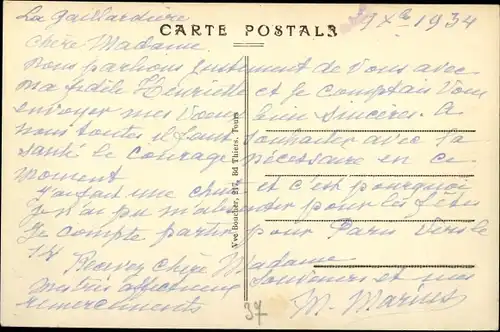 La Gaillardière
9 Xbre 1934
CARTE POSTALE
Chère Madame
Nous parlions justement de vous avec
ma fidèle Henriette et je comptais vous
envoyer mes voeux bien sincères. A
nous toutes il faut souhaiter avec la
santé le courage nécessaire en ce
moment
J'ai fait une chute et c'est pourquoi
je n'ai pu m'absenter pour les fêtes
Je compte partir pour Paris vers le
14 Recevez chère Madame
affectueux souvenirs et mes
remerciements M.
Vve Boucher, 217, Bd Thiers, Tours
37